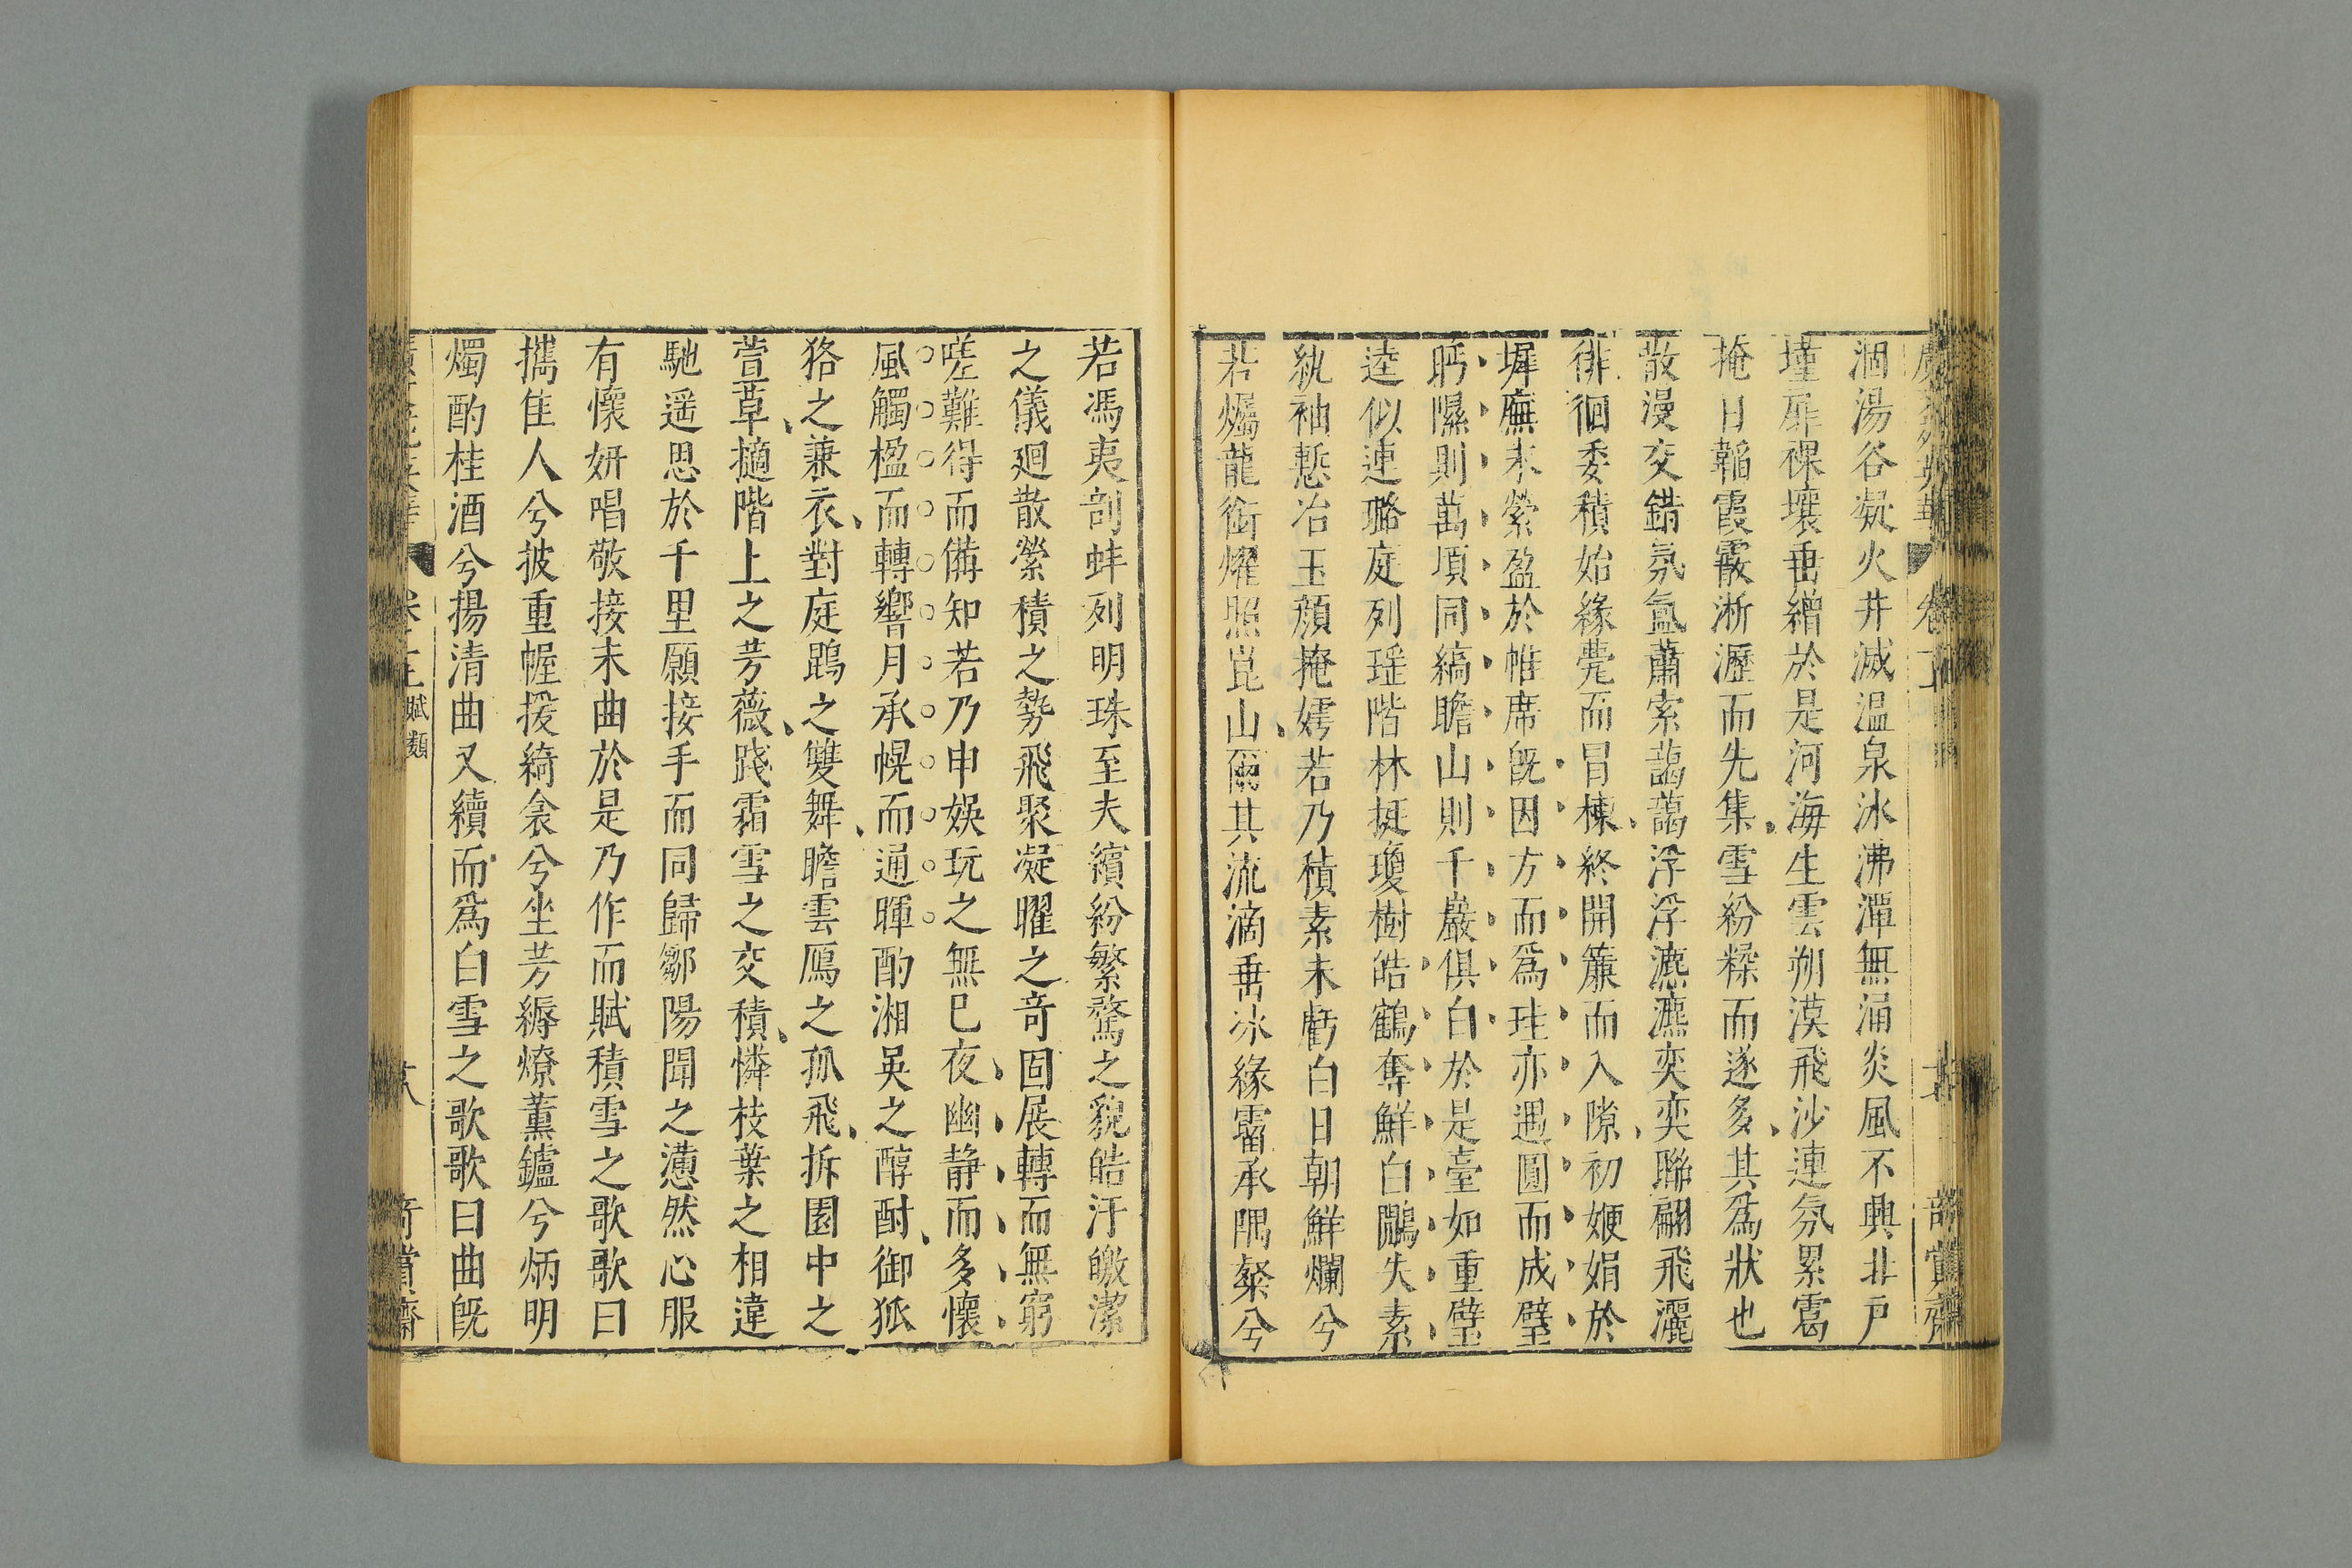 涸湯谷凝火井滅温泉冰沸潭無涌炎風不興北戸
墐扉裸壤垂繒於是河海生雲朔漠飛沙連氛累靄
掩日韜霞霰淅瀝而先集雪紛糅而遂多其爲狀也
散漫交錯氛氲蕭索藹藹浮浮瀌瀌奕奕聯翩飛灑
徘徊委積始緣甍而冒棟終開簾而入隙初㛹娟於
墀廡末縈盈於帷席旣因方而爲珪亦遇圓而成璧
眄隰則萬頃同縞瞻山則千巖俱白於是臺如重璧
逵似連璐庭列瑶階林挺瓊樹皓鶴奪鮮白鷴失素
紈袖慙冶玉顔掩嫮若乃積素未虧白日朝鮮爛兮
若燭龍銜燿照崑山爾其流滴垂冰緣霤承隅粲兮
若馮夷剖蚌列明珠至夫繽紛繁鶩之貌皓汗皦潔
之儀廻散縈積之勢飛聚凝曜之竒固展轉而無窮
嗟難得而備知若乃申娛玩之無已夜幽静而多懷
風觸楹而轉響月承幌而通暉酌湘吳之醇酎御狐
狢之兼衣對庭鵾之雙舞瞻雲鴈之孤飛折園中之
萱草摘階上之芳薇踐霜雪之交積憐枝葉之相違
馳遥思於千里願接手而同歸鄒陽聞之懣然心服
有懷妍唱敬接末曲於是乃作而賦積雪之歌歌曰
攜佳人兮披重幄援綺衾兮坐芳縟燎薰鑪兮炳明
燭酌桂酒兮揚清曲又續而爲白雪之歌歌曰曲旣
賦類
奇賞齋